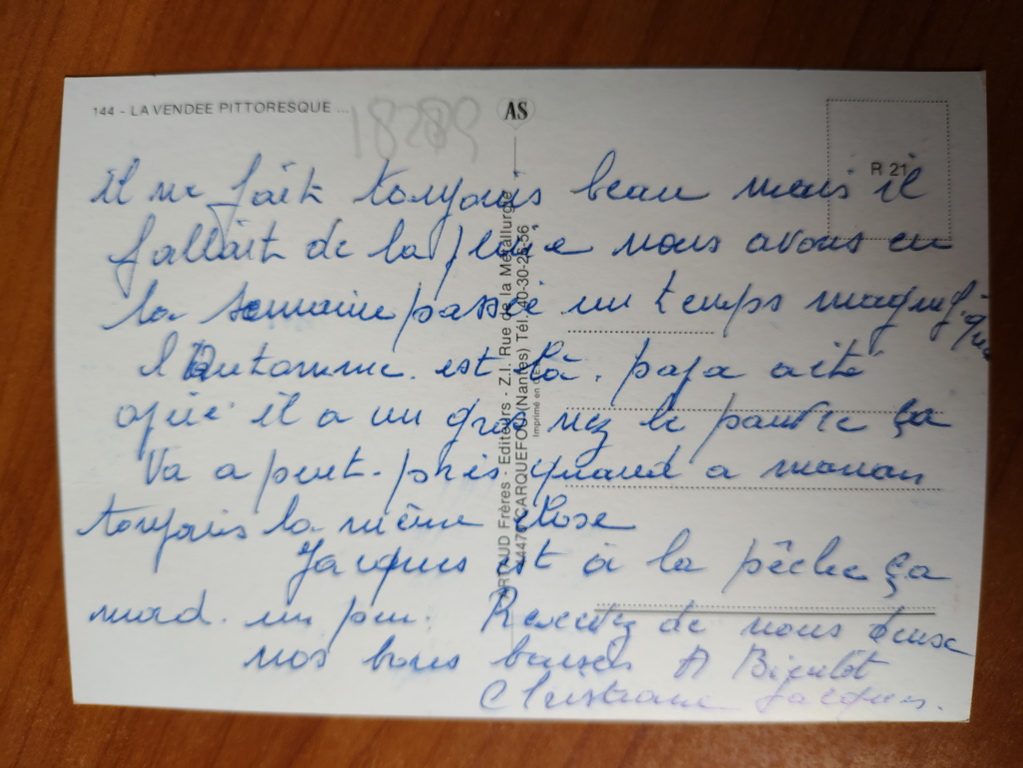 144 - LA VENDEE PITTORESQUE ...
18289
AS
R 21
il ne fait toujours beau mais il
fallait de la pluie nous avons eu
la semaine passé un temps magnifique
l'Automme. est là. papa a été
opéré il a un gros nez le pauvre ça
va a peut-près quand a maman
toujours la même chose
Jacques est à la pêche ça
mord. un peu. Recevez de nous deux
nos bons baisers A Bientôt
Christiane Jacques.
ARTAUD Frères - Editeurs - Z.I. Rue de la Métallurgie
44470 CARQUEFOU (Nantes) Tél. 40-30-25-56
Imprimé en